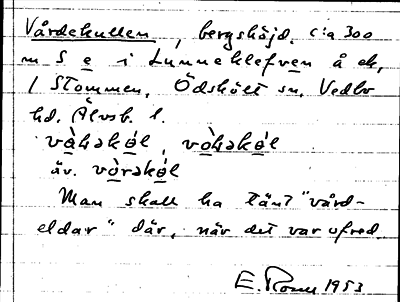 Vårdekullen, bergshöjd, c:a 300
m S e i Lunneklefven å ek,
1 Stommen, Ödskölt sn, Vedbo
hd, Älvsb. l.
äv.
Man skall ha tänt "vård-
eldar" där, när det var ofred.
E. 1953